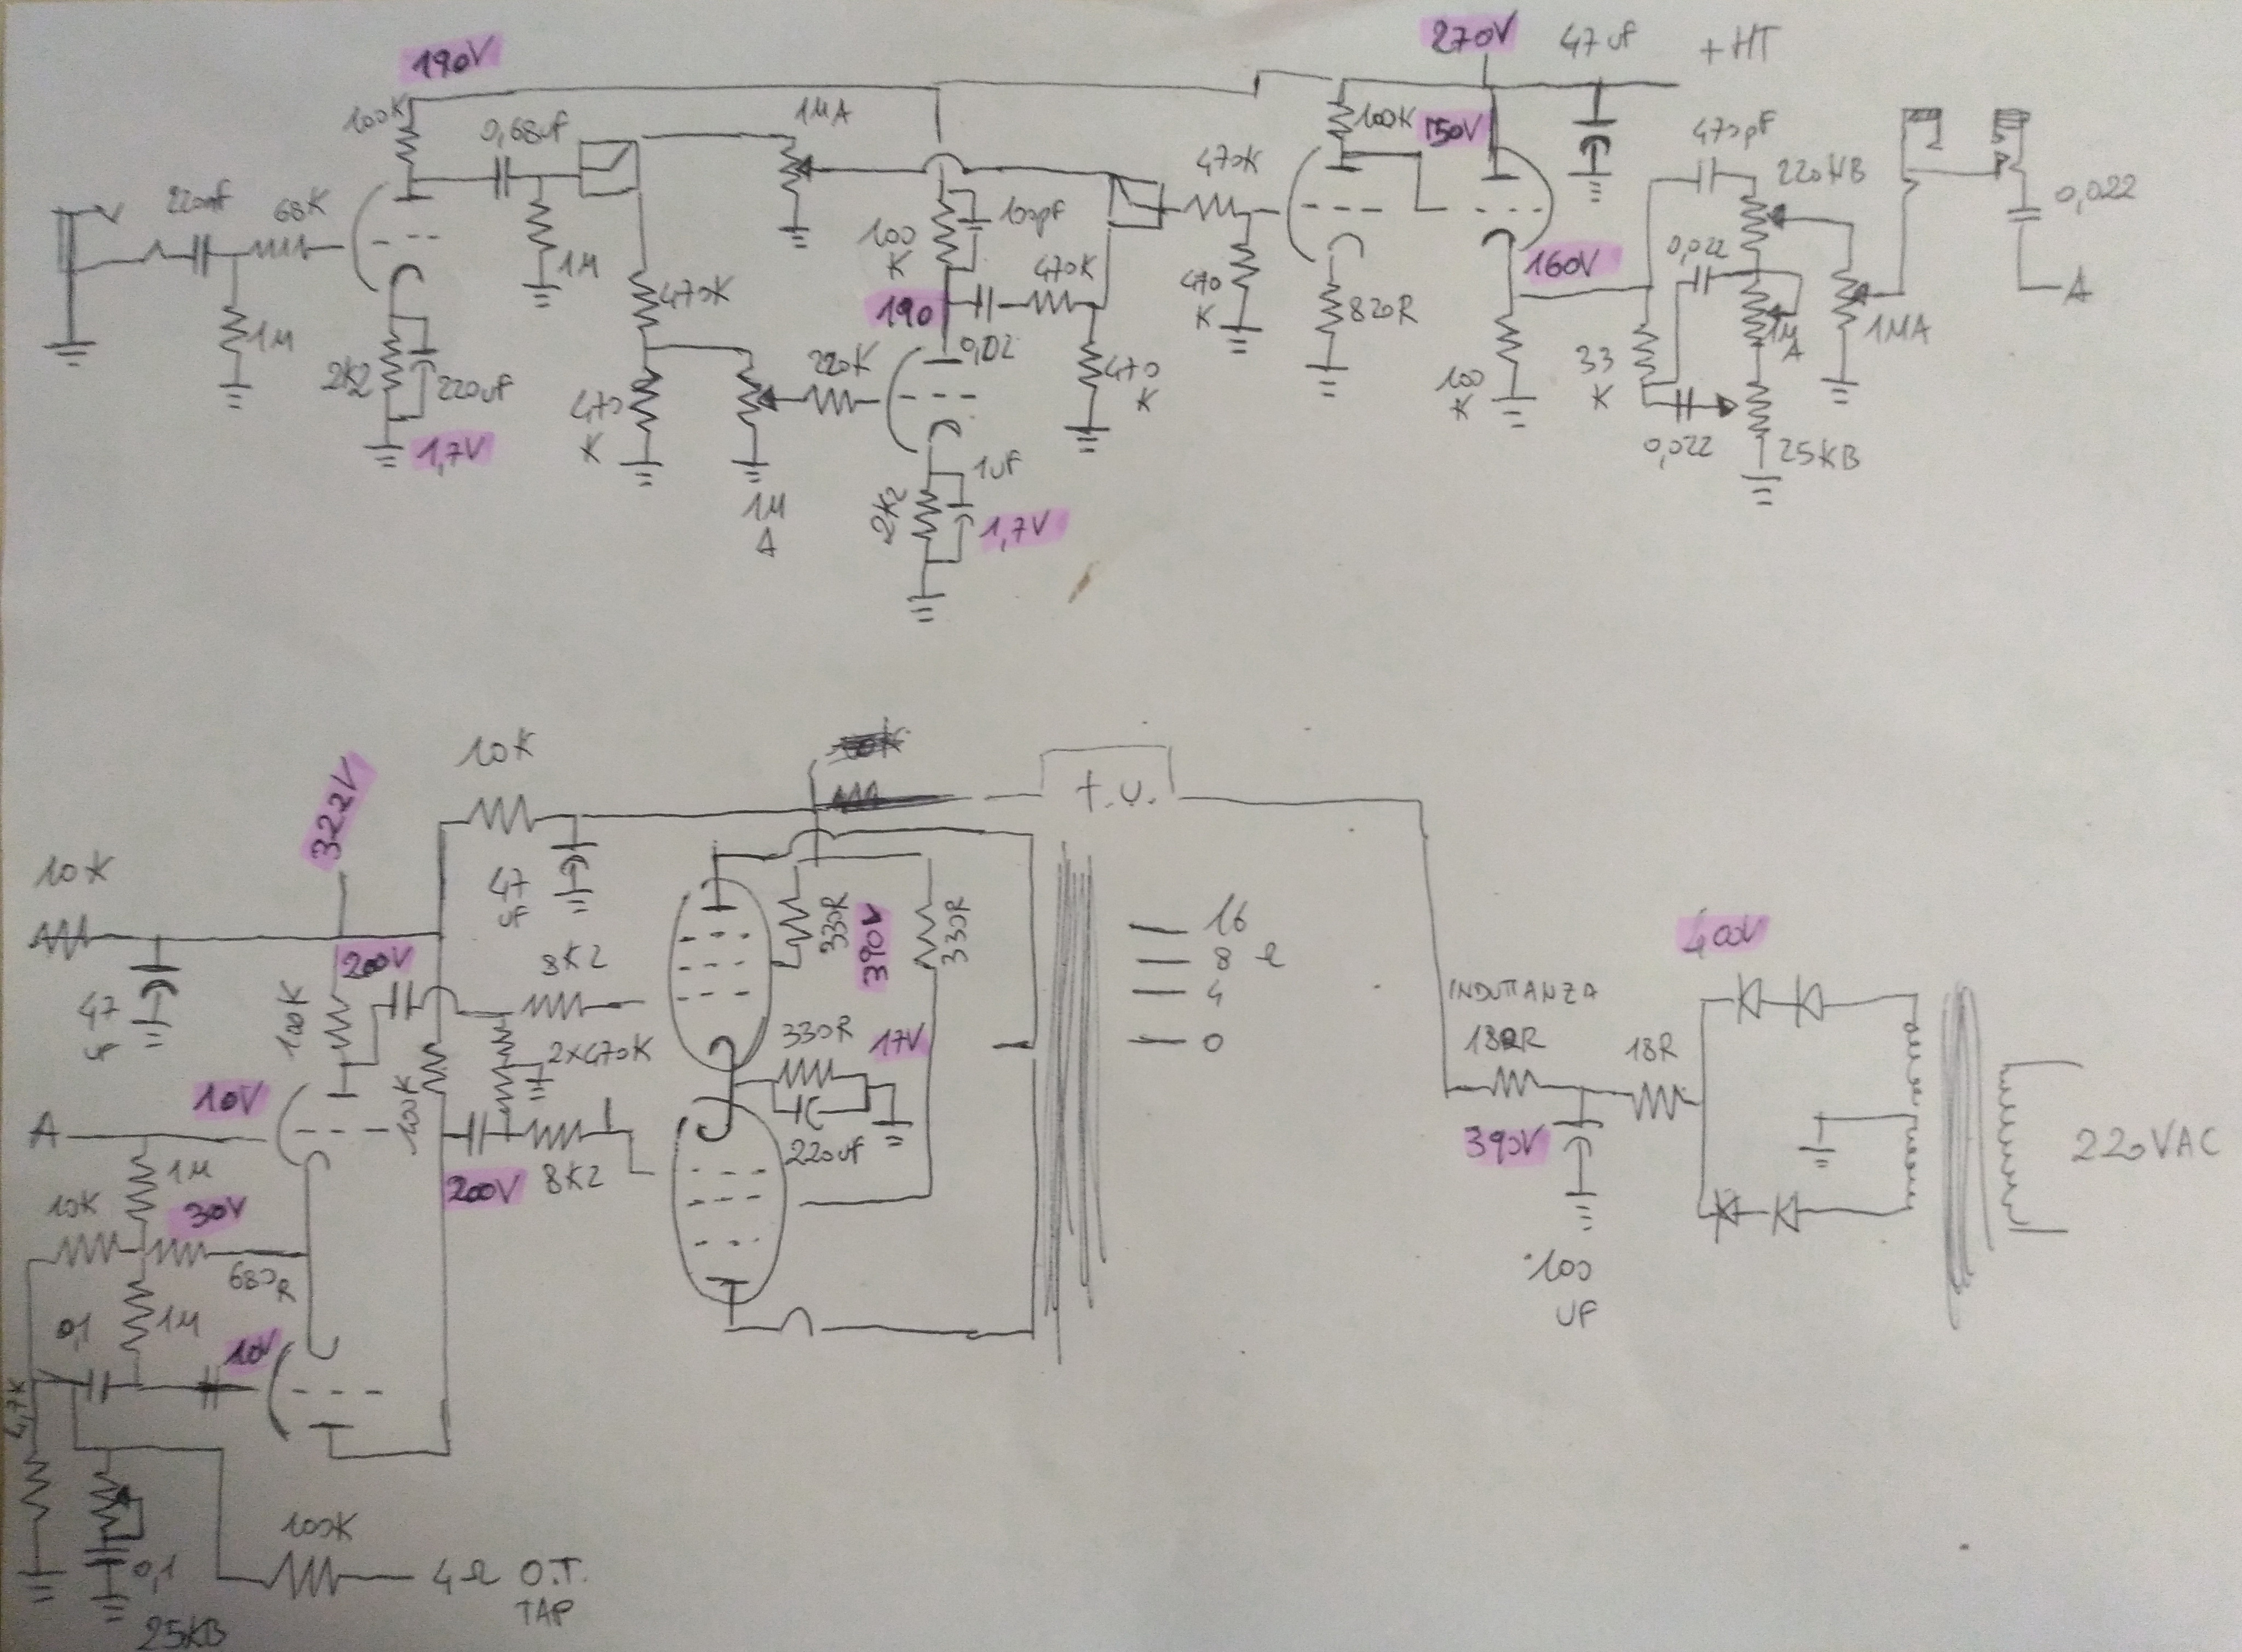 190V
270V
47 uF
+HT
100K
0,68uF
1MA
100K
150V
470pF
220KB
220nF
68K
470K
0,022
1M
100
K
100pF
470K
0,022
A
1M
470K
190
0,02
470
K
820R
160V
33
K
1M
A
1MA
2K2
220uF
1,7V
470
K
220K
470
K
100
K
0,022
25KB
1M
A
2K2
1uF
1,7V
10K
322V
10K
t.u.
47
uF
47
uF
200V
100K
8K2
330R
390V
330R
16
8 Ω
4
0
400V
INDUTTANZA
18R
330R
17V
2x470K
100K
10V
A
220uF
200V
8K2
390V
220VAC
1M
10K
30V
680R
100
UF
0,1
1M
10V
4,7K
100K
0,1
4Ω O.T.
TAP
25KB